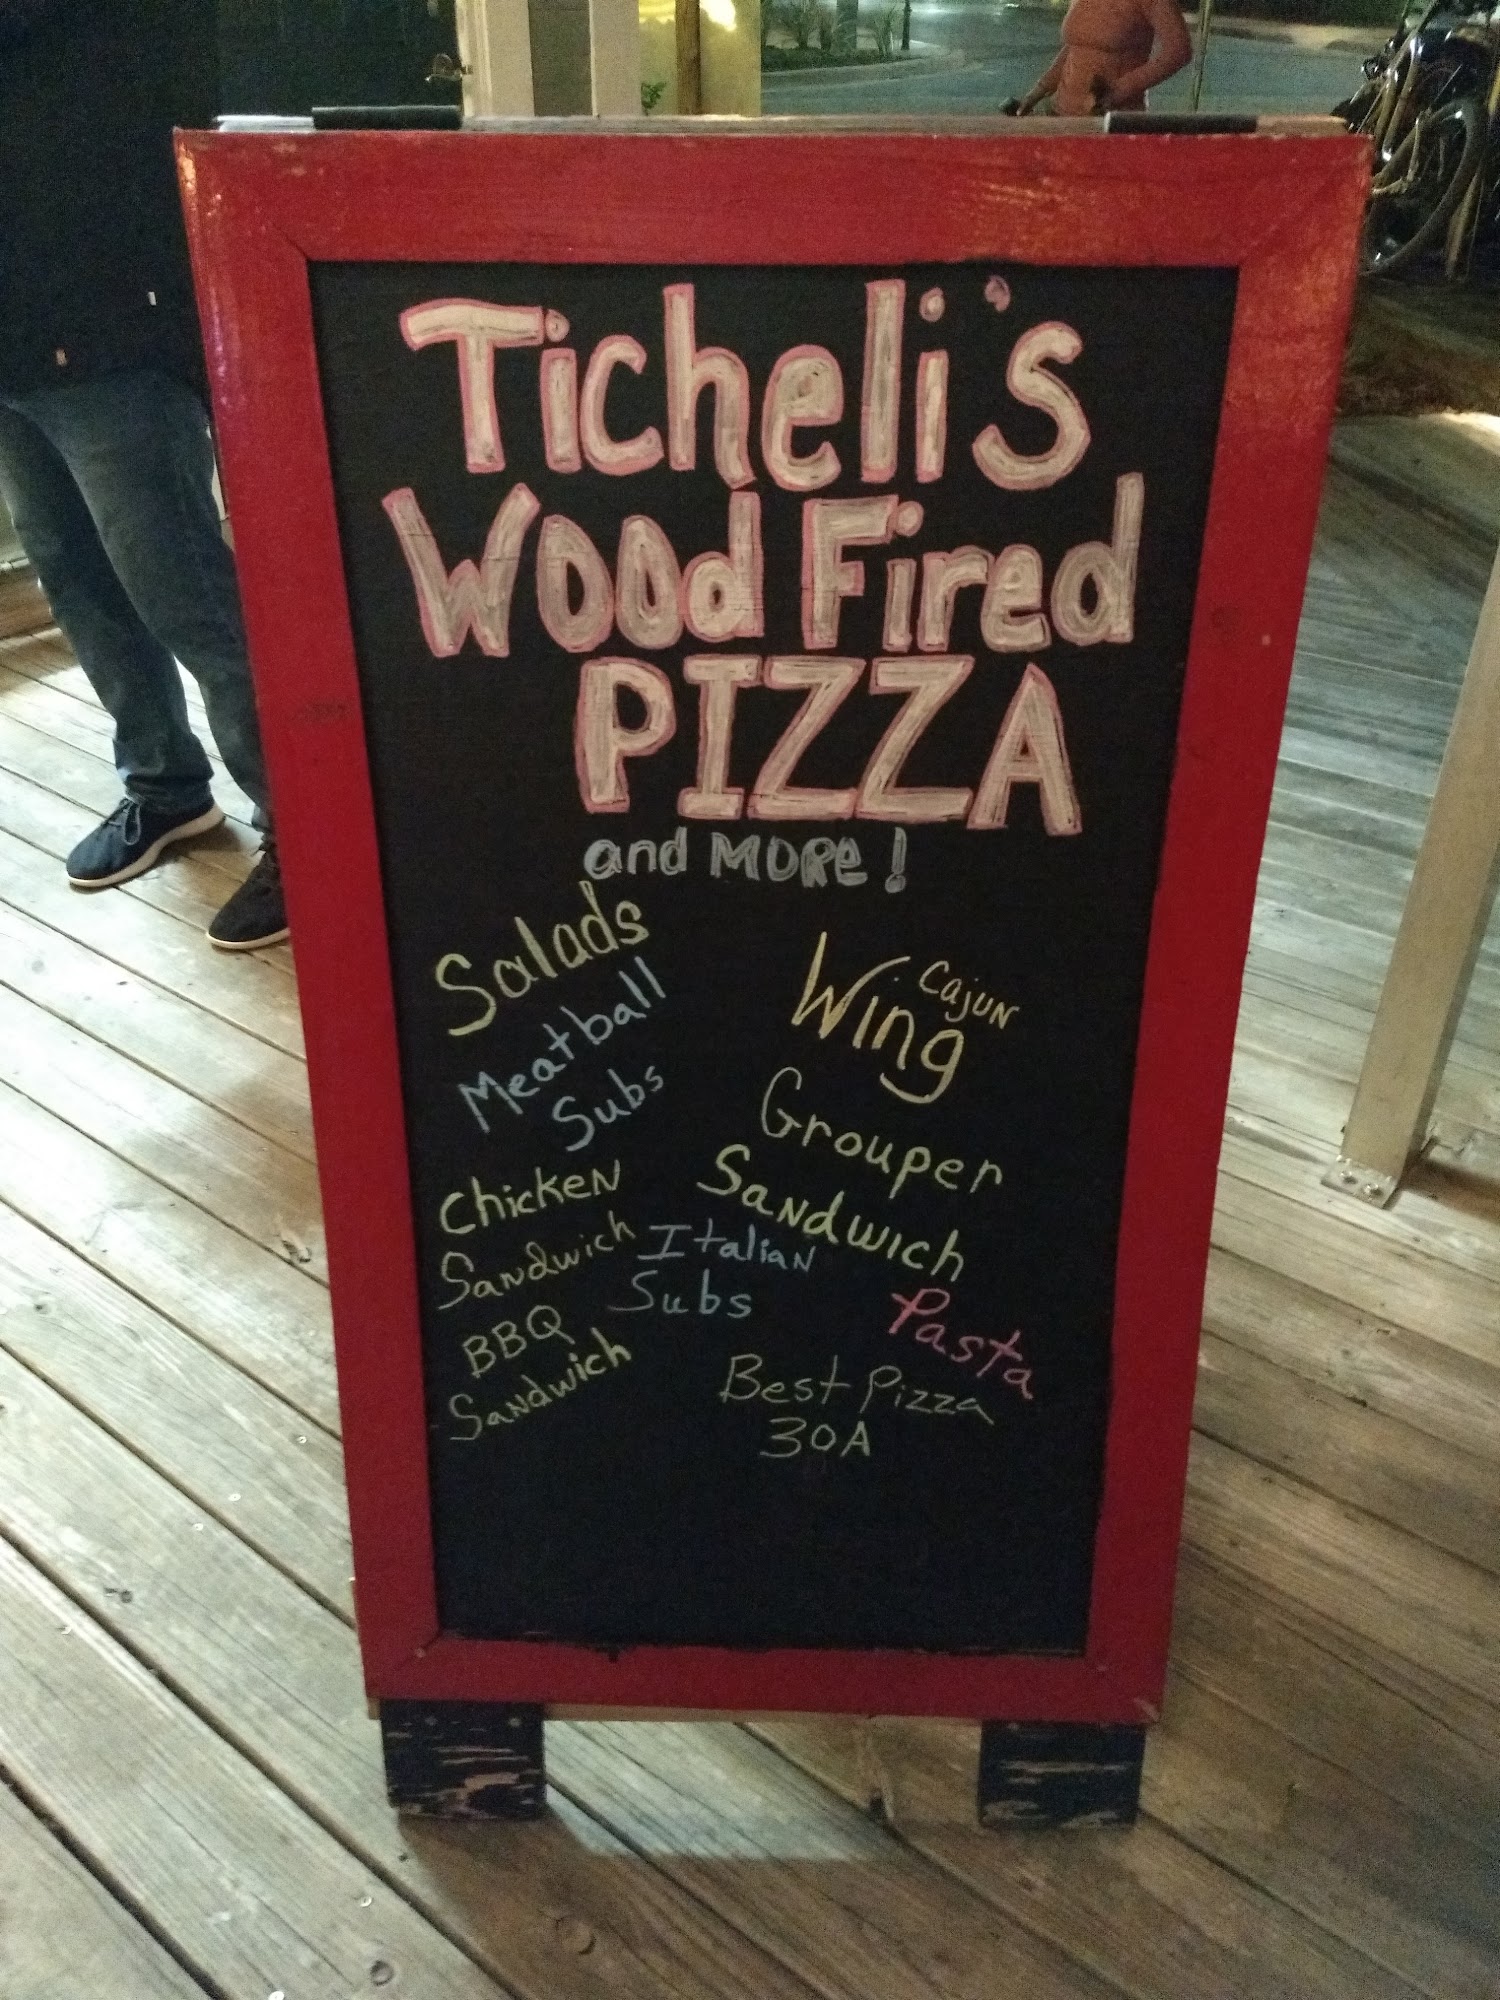 Ticheli's
Wood Fired
PIZZA
and MORe!
Salads
Meatball
Subs
Chicken
Sandwich
BBQ
Sandwich
Cajun
Wing
Grouper
Sandwich
Italian
Subs
Pasta
Best Pizza
30A